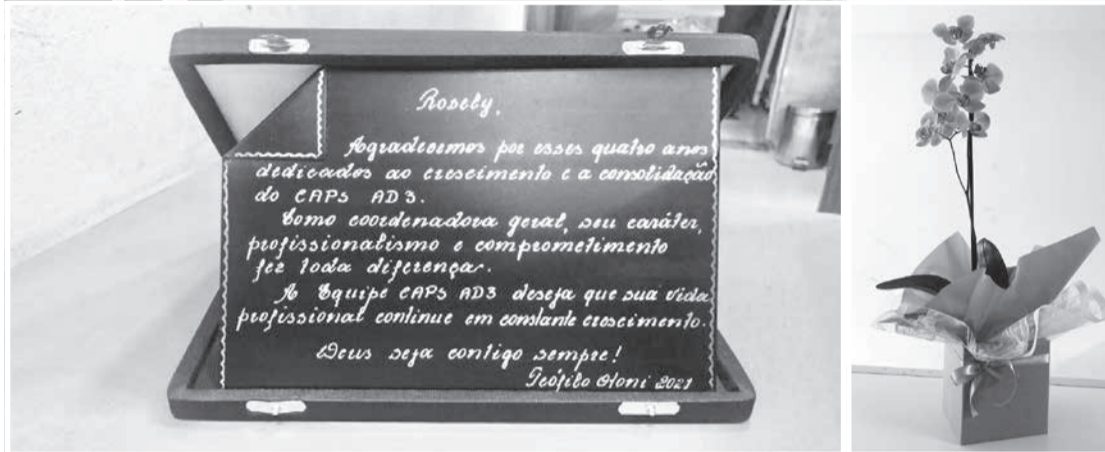 Rosely,
Agradecermos por esses quatro anos
dedicados ao crescimento e a consolidação
do CAPS AD3.
Como coordenadora geral, seu caráter,
profissionalismo e comprometimento
fez toda diferença.
A Equipe CAPS AD3 deseja que sua vida
profissional continue em constante crescimento.
Deus seja contigo sempre!
Teófilo Otoni 2021